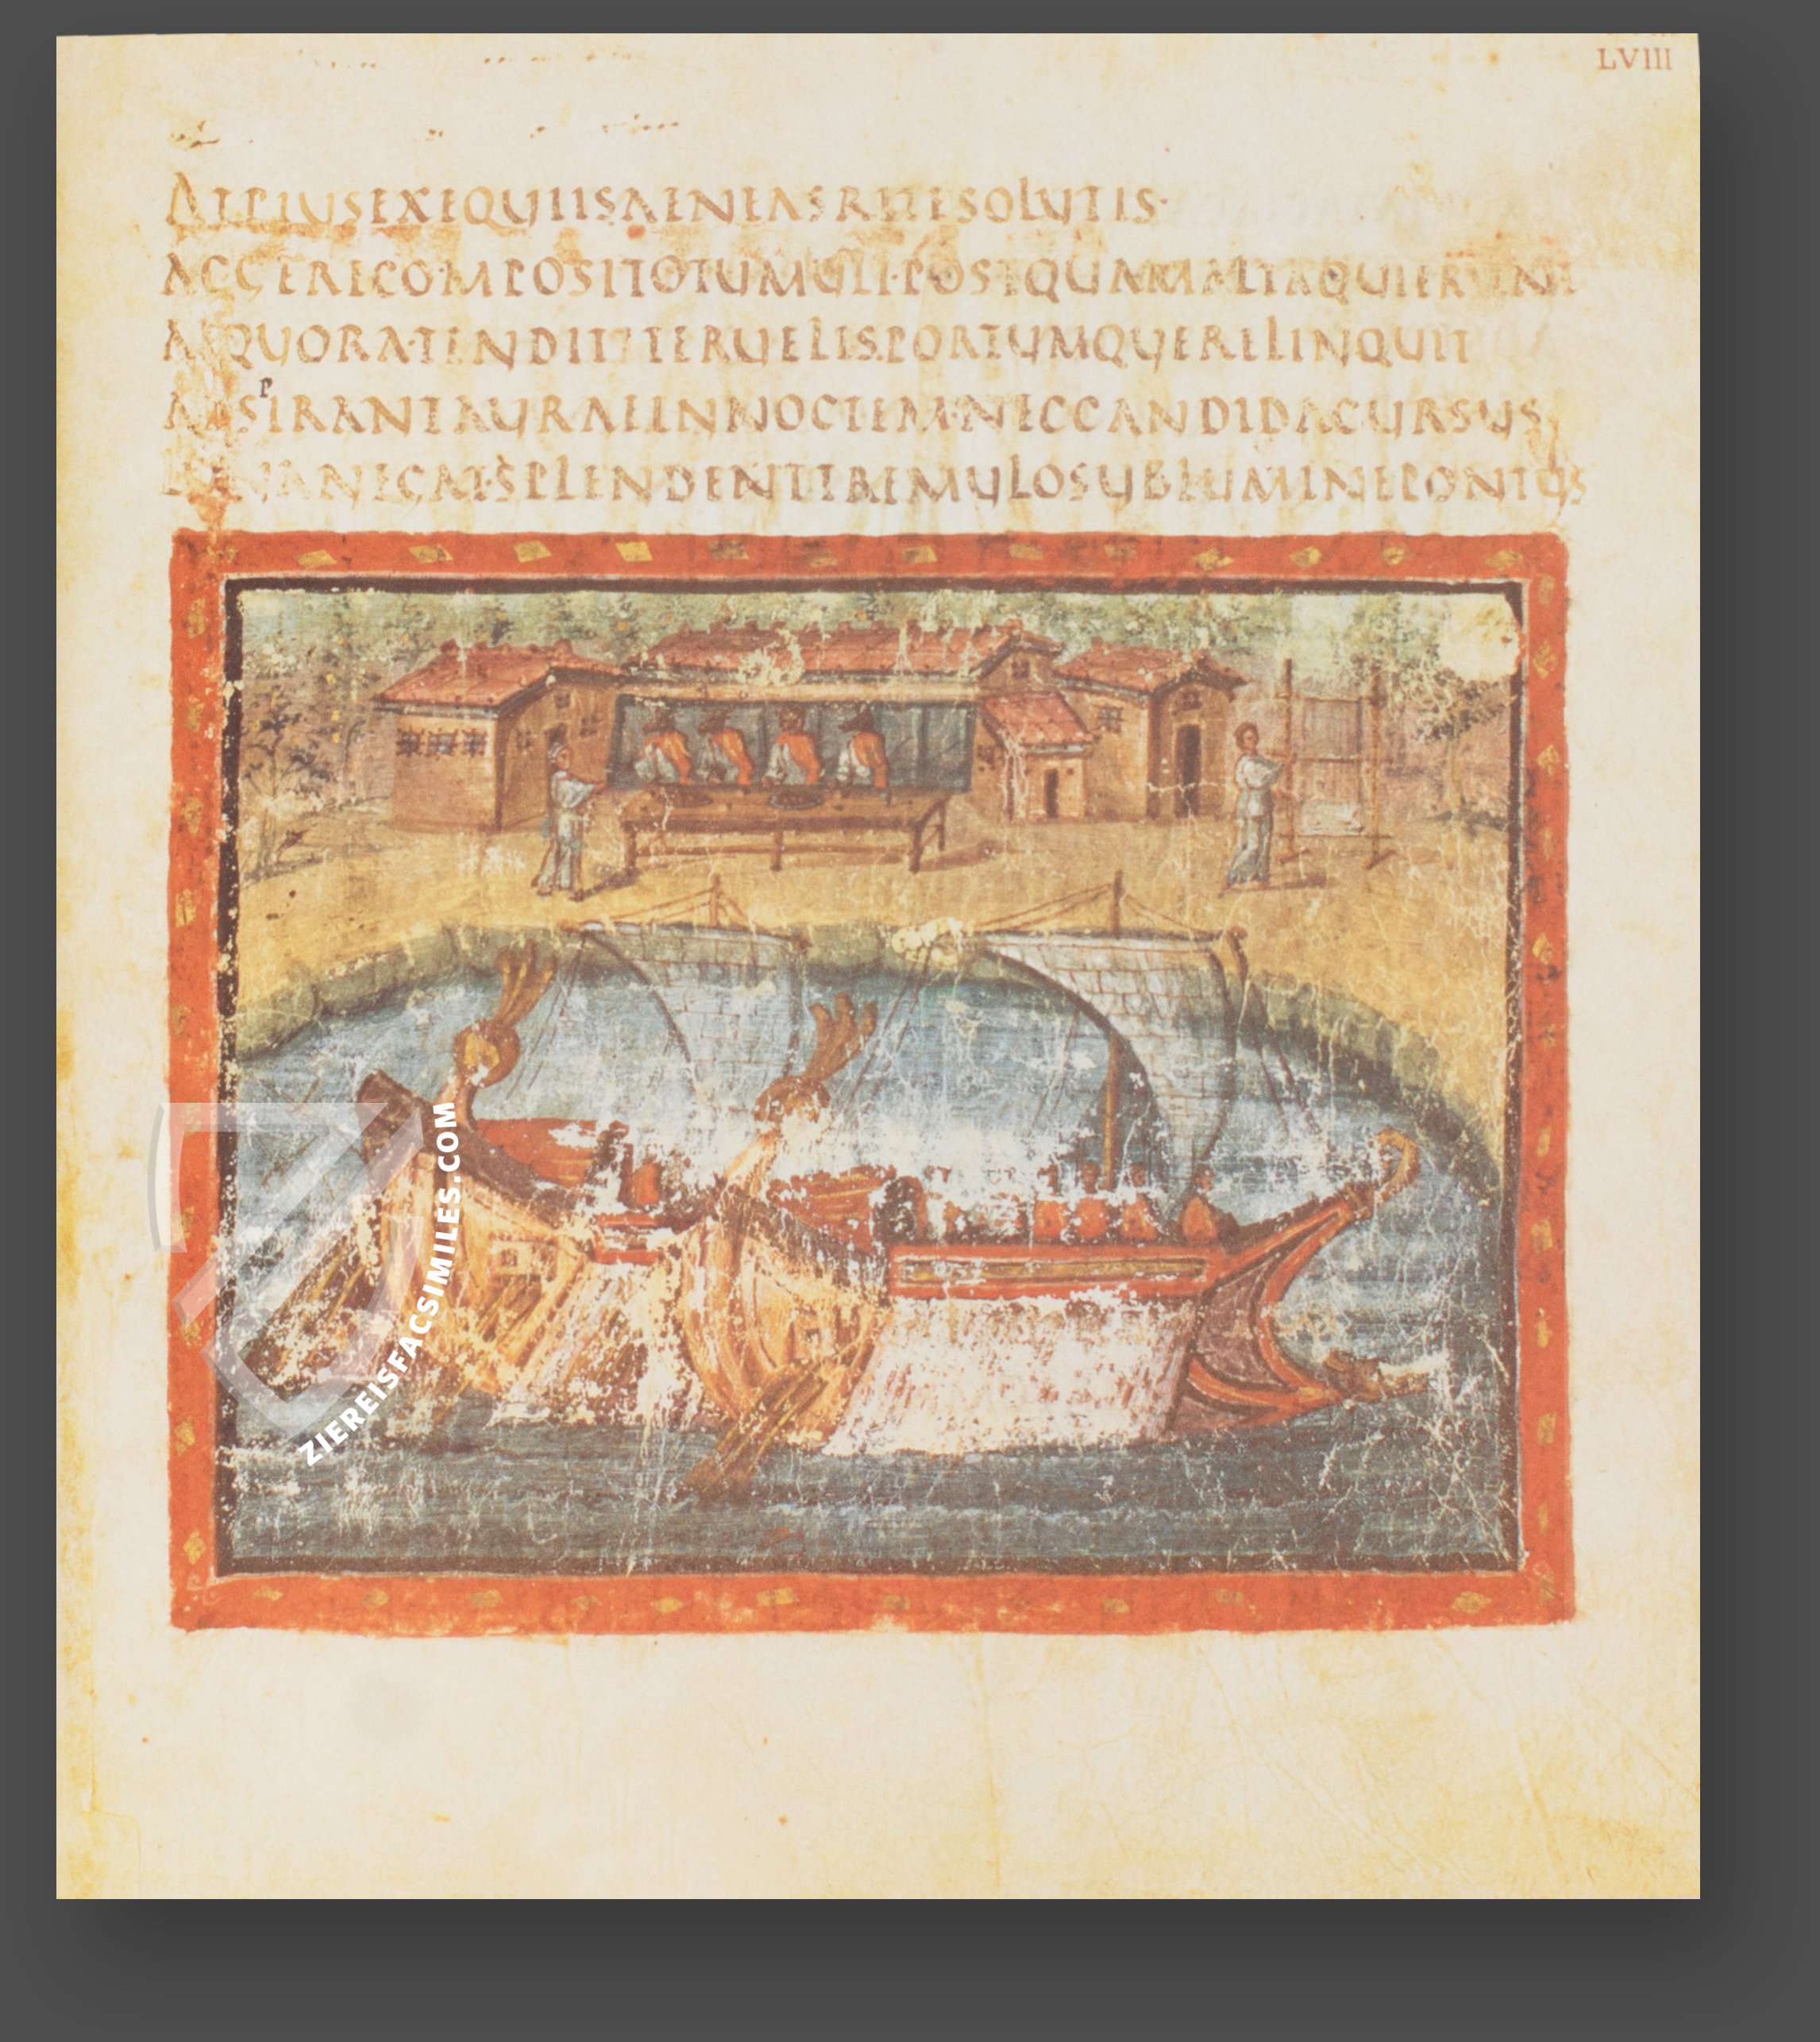 LVIII
ATPIUSEXEQUIISAENEASRITESOLUTIS·
AGGERECOMPOSITOTUMULI·POSTQUAMALTAQUIERUNT
AEQUORATENDITITERUELISPORTUMQUERELINQUIT
P
ADSIRANTAURAEINNOCTEM·NECCANDIDACURSUS
LUNANEGAT·SPLENDETTREMULOSUBLUMINEPONTUS
ZIEREISFACSIMILES.COM